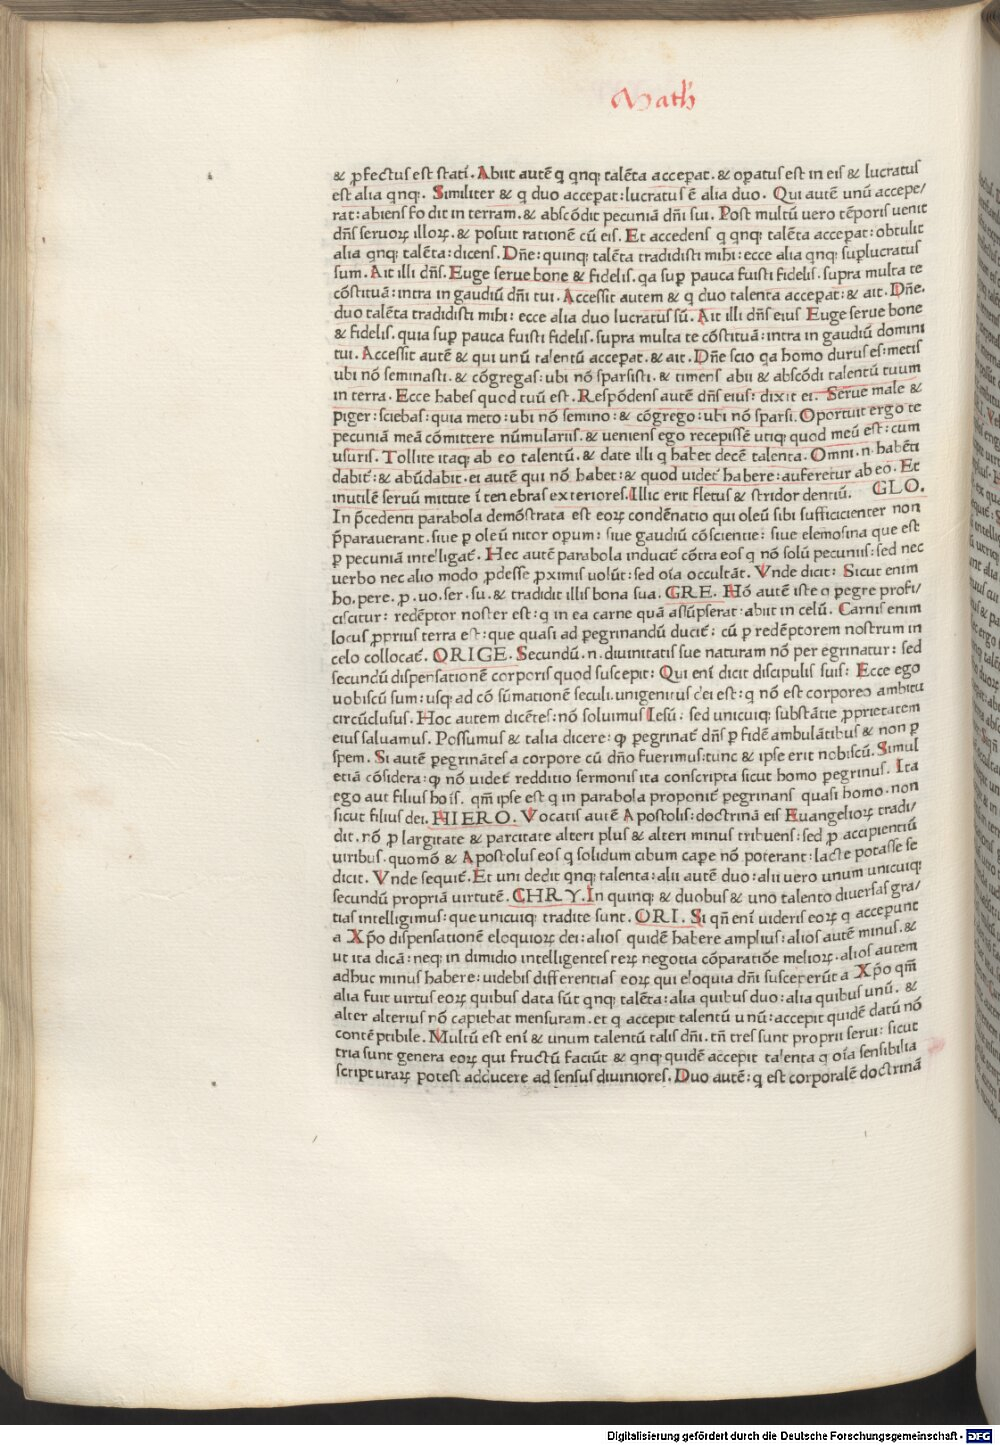 Math̄
& ꝓfectus est stati᷒. Abiit autē q̇ qnq; talēta acceꝑat. & oꝑatus est in eis & lucratus
est alia qnq;. Similiter & q̇ duo acceꝑat: lucratus ē alia duo. Qui autē unū accepe/
rat: abiens fodit in terram. & abscōdit pecuniā dn̄i sui. Post multū uero tēporis uenit
dn̄s seruoꝝ illoꝝ. & posuit rationē cū eis. Et accedens q̇ qnq; talēta acceꝑat: obtulit
alia qnq; talēta: dicens. Dn̄e: quinq; talēta tradidisti mihi: ecce alia qnq; suꝑlucratus
sum. Ait illi dn̄s. Euge serue bone & fidelis. qa suꝑ pauca fuisti fidelis. supra multa te
cōstituā: intra in gaudiū dn̄i tui. Accessit autem & q̇ duo talenta acceꝑat: & ait. Dn̄e.
duo talēta tradidisti mihi: ecce alia duo lucratus sū. Ait illi dn̄s eius Euge serue bone
& fidelis. quia suꝑ pauca fuisti fidelis. supra multa te cōstituā: intra in gaudiū domini
tui. Accessit autē & qui unū talentū acceꝑat. & ait. Dn̄e scio qa homo durus es: metis
ubi nō seminasti. & cōgregas: ubi nō sparsisti. & timens abii & abscōdi talentū tuum
in terra. Ecce habes quod tuū est. Respōdens autē dn̄s eius: dixit ei. Serue male &
piger: sciebas: quia meto: ubi nō semino: & cōgrego: ubi nō sparsi. Oportuit ergo te
pecuniā meā cōmittere nūmulariis. & ueniens ego recepissē utiq; quod meū est: cum
usuris. Tollite itaq; ab eo talentū. & date illi q̇ habet decē talenta. Omni. n. habēti
dabit᷒: & abūdabit. ei autē qui nō habet: & quod uidet᷒ habere: auferetur ab eo. Et
inutilē seruū mittite ī tenebras exteriores. Illic erit fletus & stridor dentiū. GLO.
In p̄cedenti parabola demōstrata est eoꝝ condēnatio qui oleū sibi sufficicienter non
p̄parauerant. siue ꝑ oleū nitor opum: siue gaudiū cōscientie: siue elemosina que est
ꝑ pecuniā intelligat᷒. Hec autē parabola inducit᷒ cōtra eos q̇ nō solū pecuniis: sed nec
uerbo nec alio modo ꝓdesse ꝓximis uolūt: sed oīa occultāt. Vnde dicit: Sicut enim
ho. pere. ꝓ. uo. ser. su. & tradidit illis bona sua. GRE. Hō autē iste q̇ pegre profi/
ciscitur: redēptor noster est: q̇ in ea carne quā assūpserat: abiit in celū. Carnis enim
locus ꝓprius terra est: que quasi ad ꝑegrinandū ducit᷒: cū ꝑ redēptorem nostrum in
celo collocat᷒. ORIGE. Secundū. n. diuinitatis sue naturam nō per egrinatur: sed
secundū dispensationē corporis quod suscepit: Qui enī dicit discipulis suis: Ecce ego
uobiscū sum: usq; ad cōsūmationē seculi. unigenitus dei est: q̇ nō est corporeo ambitu
circūclusus. Hoc autem dicētes: nō soluimus Iesū: sed unicuiq; substātie ꝓprietatem
eius saluamus. Possumus & talia dicere: ꝙ ꝑegrinat᷒ dn̄s ꝑ fidē ambulātibus & non ꝑ
spem. Si autē ꝑegrinātes a corpore cū dn̄o fuerimus: tunc & ipse erit nobiscū. Simul
etiā cōsidera: ꝙ nō uidet᷒ redditio sermonis ita conscripta sicut homo pegrinus. Ita
ego aut filius hoīs. qm̄ ipse est q̇ in parabola proponit᷒ pegrinans quasi homo. non
sicut filius dei. HIERO. Vocatis autē Apostolis: doctrinā eis Euangelioꝝ tradi/
dit. nō ꝓ largitate & parcitate alteri plus & alteri minus tribuens: sed ꝓ accipientiū
uiribus. quomō & Apostolus eos q̇ solidum cibum caꝑe nō poterant: lacte potasse se
dicit. Vnde sequit᷒. Et uni dedit qnq; talenta: alii autē duo: alii uero unum unicuiq;
secundū propriā uirtutē. CHRY. In quinq; & duobus & uno talento diuersas gra/
tias intelligimus: que unicuiq; tradite sunt. ORI. Si qn̄ enī uideris eoꝝ q̇ acceꝑunt
a Xp̄o dispensationē eloquioꝝ dei: alios quidē habere amplius: alios autē minus. &
ut ita dicā: neq; in dimidio intelligentes reꝝ negotia cōparatiōe melioꝝ. alios autem
adhuc minus habere: uidebis differentias eoꝝ qui eloquia dn̄i susceperūt a Xp̄o qm̄
alia fuit uirtus eoꝝ quibus data sūt qnq; talēta: alia quibus duo: alia quibus unū. &
alter alterius nō capiebat mensuram. et q̇ accepit talentū unū: accepit quidē datū nō
contēptibile. Multū est enī & unum talentū talis dn̄i. tn̄ tres sunt proprii serui: sicut
tria sunt genera eoꝝ qui fructū faciūt & qnq; quidē accepit talenta q̇ oīa sensibilia
scripturaꝝ potest adducere ad sensus diuiniores. Duo autē: q̇ est corporalē doctrinā
Digitalisierung gefördert durch die Deutsche Forschungsgemeinschaft - DFG